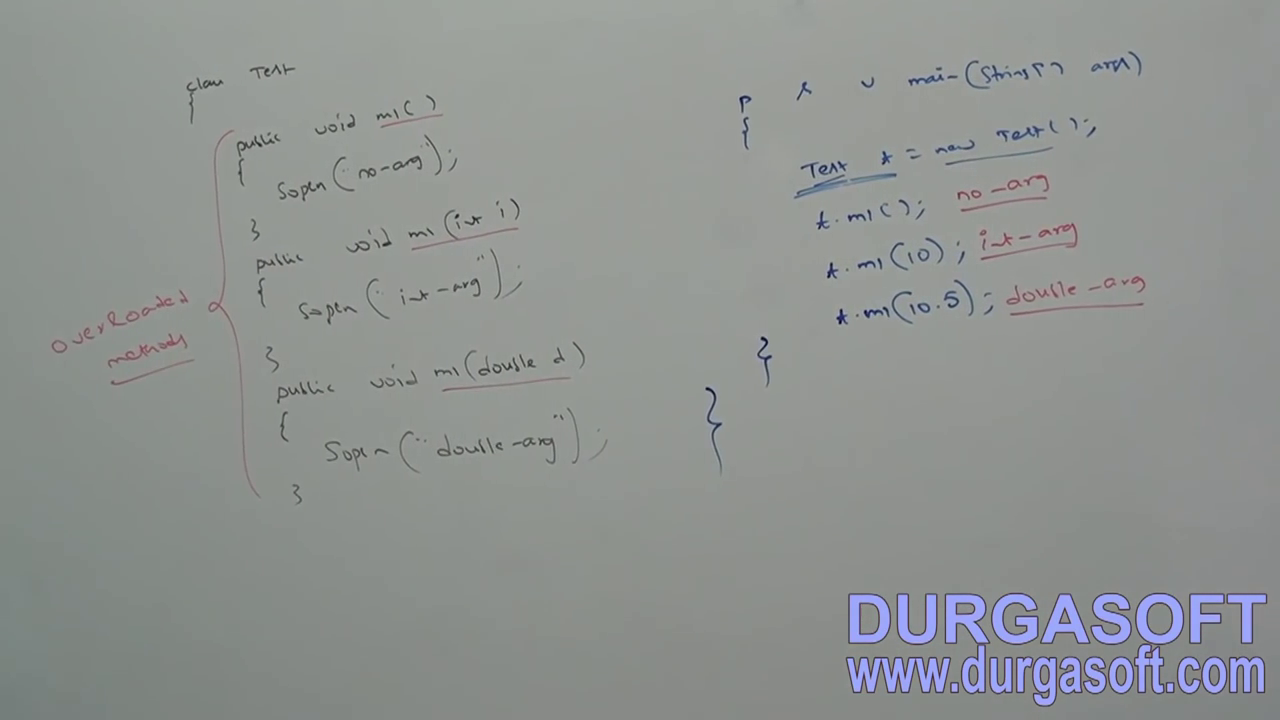 class Test
{
public void m1()
{
Sopln("no-arg");
}
public void m1(int i)
{
Sopln("int-arg");
}
public void m1(double d)
{
Sopln("double-arg");
}
overloaded
methods
P s v main(String[] args)
{
Test t = new Test();
t.m1(); no-arg
t.m1(10); int-arg
t.m1(10.5); double-arg
}
}
DURGASOFT
www.durgasoft.com